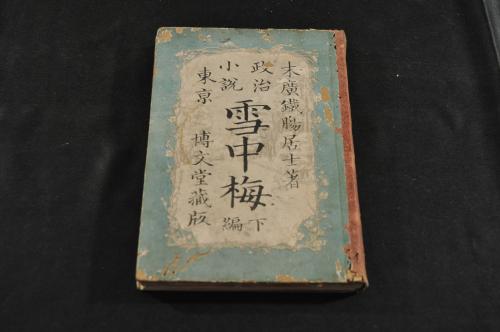 末廣鐵腸居士著
政治
小説
雪中梅
下
編
東京
博文堂藏版